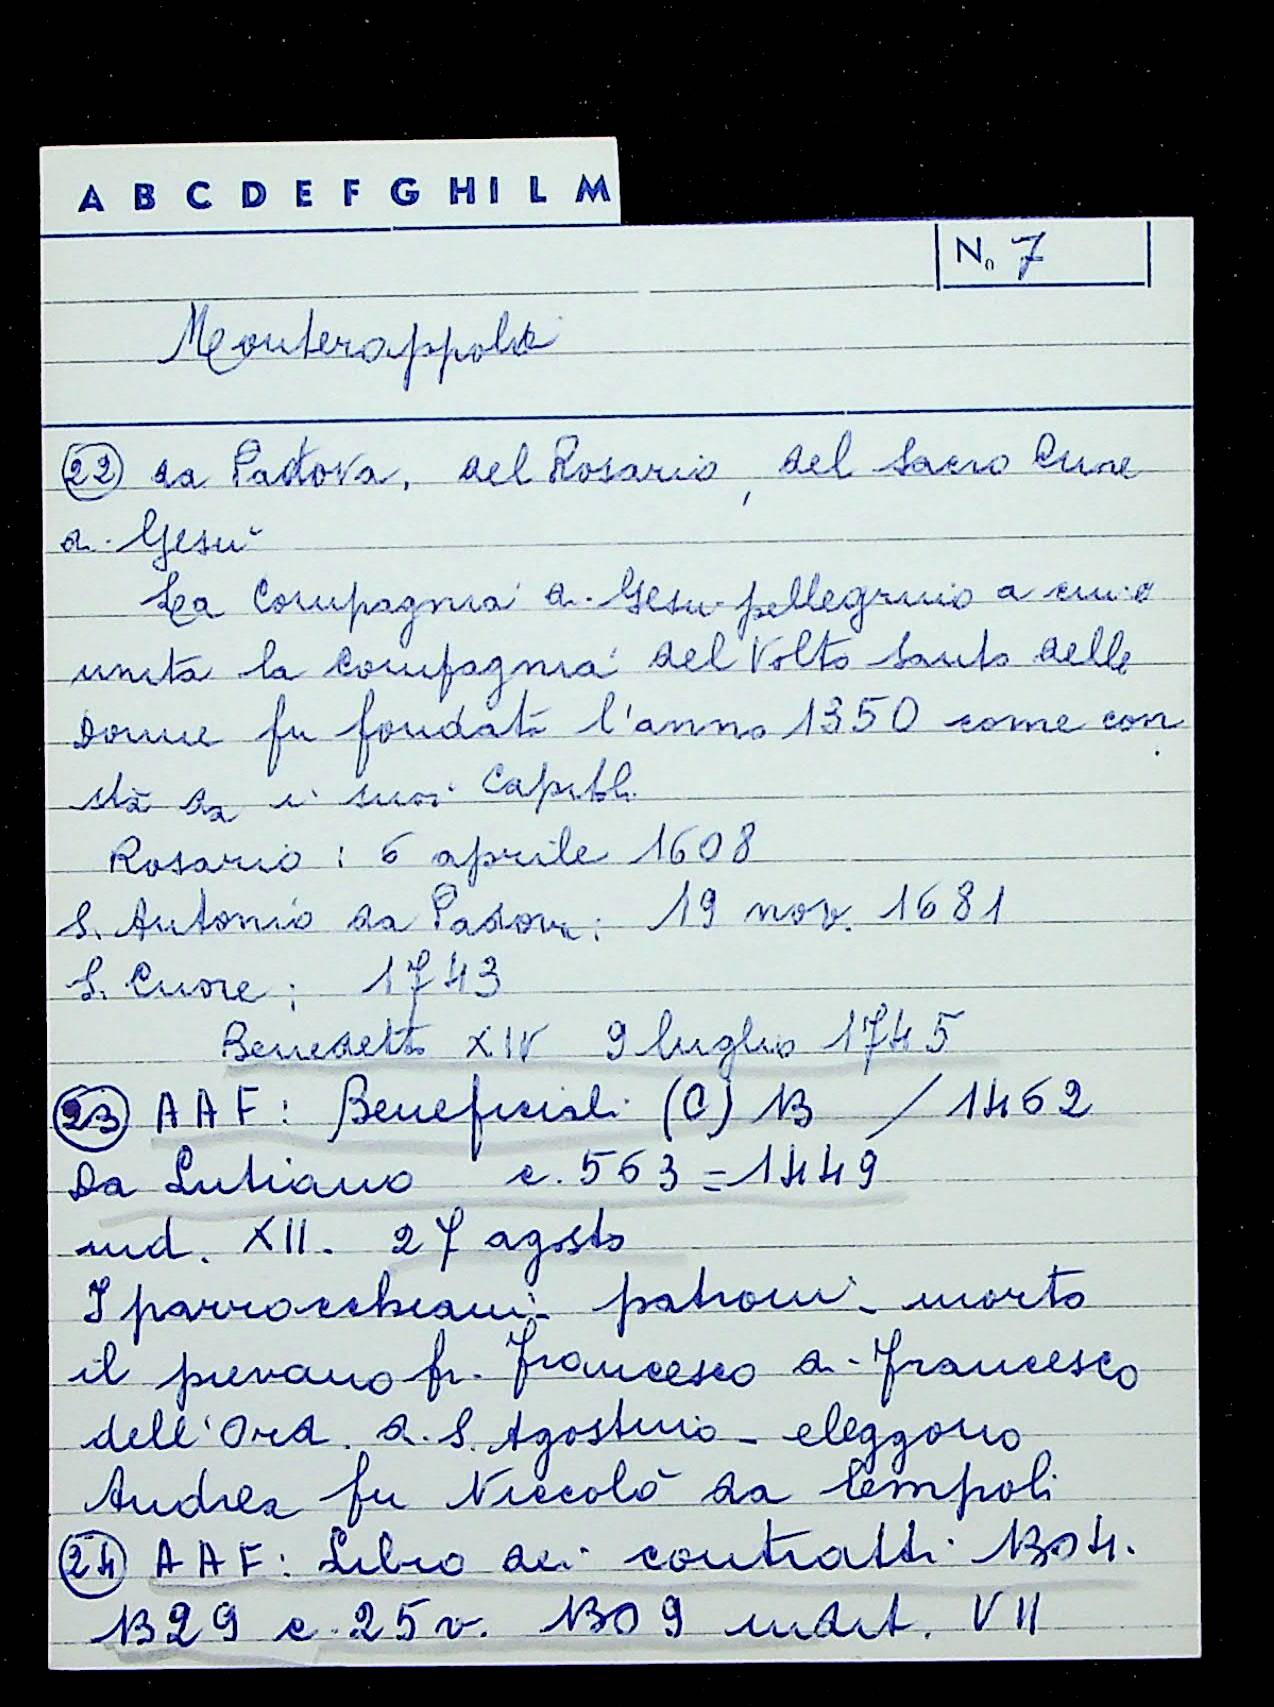 A B C D E F G H I L M
N. 7
Monterappoli
22 da Padova, del Rosario, del Sacro Cuore
di Gesù
La Compagnia di Gesù pellegrino a cui è
unita la Compagnia del Volto Santo delle
Donne fu fondata l'anno 1350 come con
sta da i suoi Capitoli
Rosario: 6 aprile 1608
S. Antonio da Padova: 19 nov. 1681
S. Cuore: 1743
Benedetto XIV 9 luglio 1745
23 AAF: Beneficiali (C) 13 / 1462
Da Lutiano c. 563 = 1449
ind. XII. 27 agosto
I parrocchiani patroni - morto
il pievano fr. Francesco di Francesco
dell'Ord. di S. Agostino - eleggono
Andrea fu Niccolò da Empoli
24 AAF: Libro dei contratti 1304.
1329 c. 25v. 1309 indit. VII